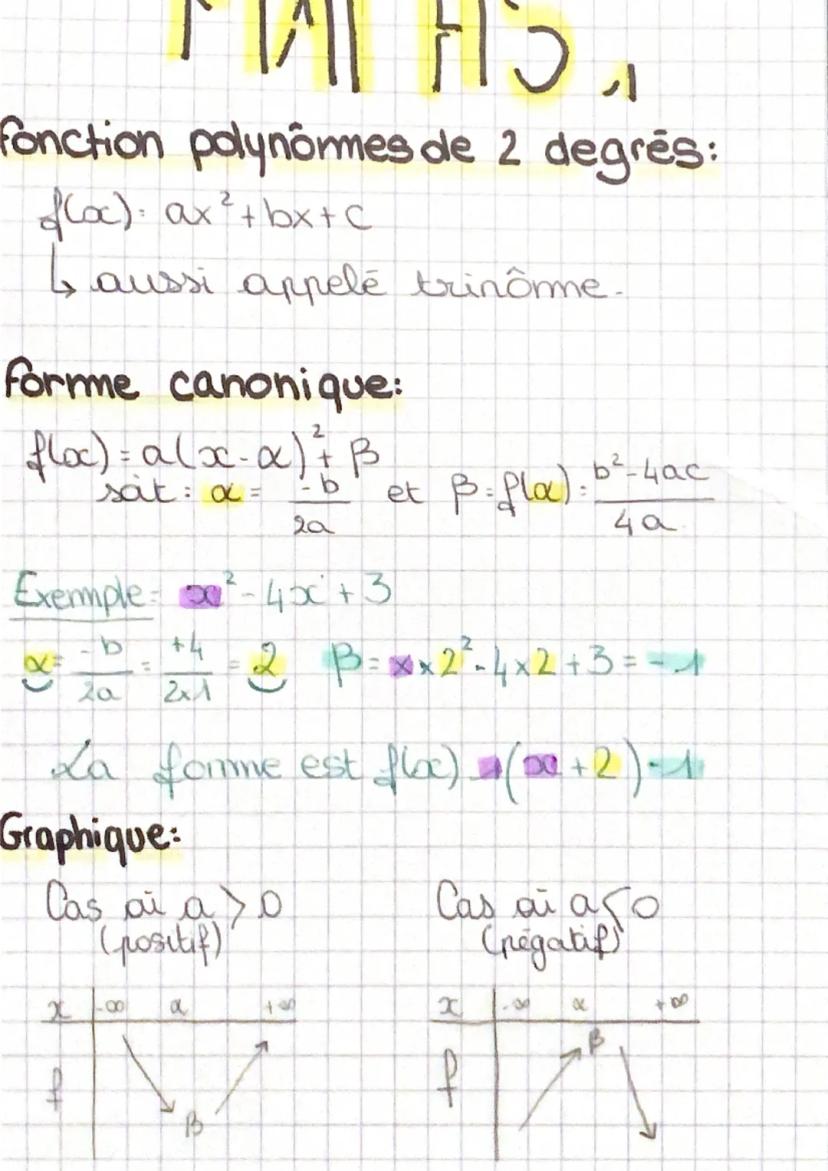 MATHS.1
fonction polynômes de 2 degrés:
f(x) = ax² + bx + c
↳ aussi appelé trinôme.
forme canonique:
f(x) = a(x - α)² + β
soit : α = -b/2a et β = f(α) = b²-4ac/4a
Exemple = x² - 4x + 3
α = -b/2a = +4/2x1 = 2 β = x 2² - 4 x 2 + 3 = -1
La forme est f(x) (x + 2) - 1
Graphique:
Cas où a > 0 Cas où a < 0
(positif) (négatif)
x -∞ α +∞ x -∞ α +∞
f β f β